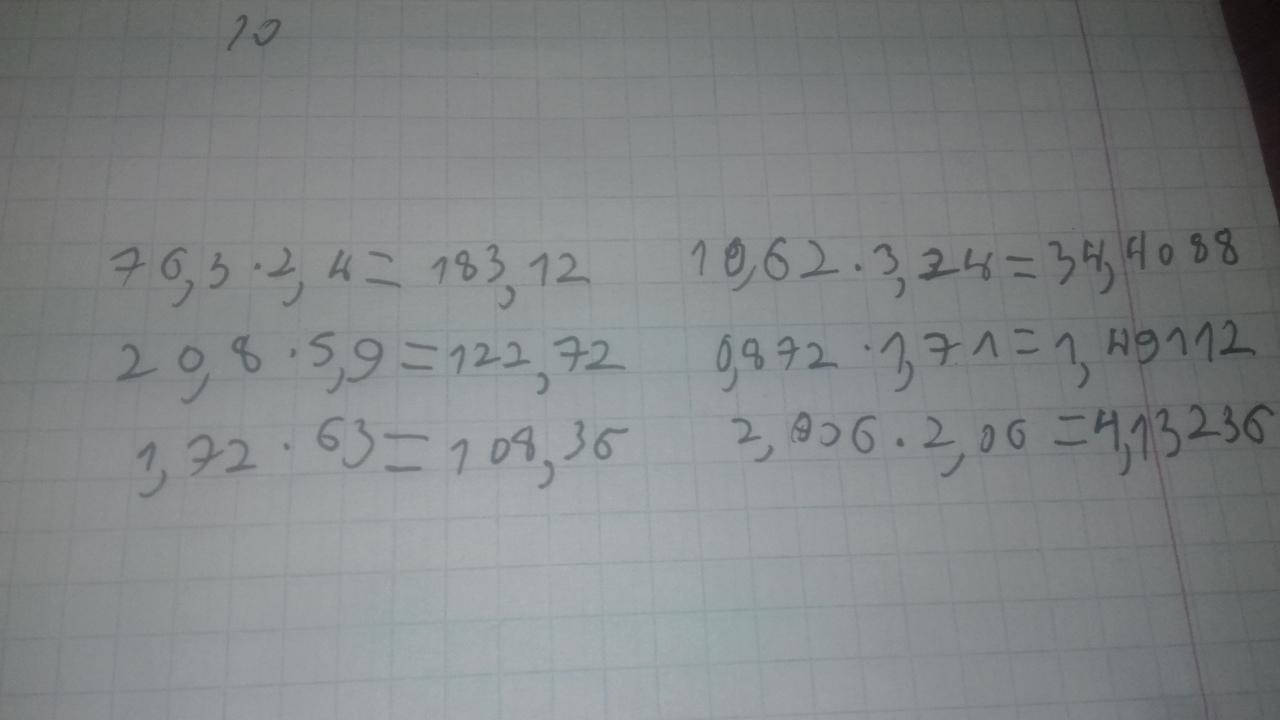 10
76,3·2,4=183,12 10,62·3,24=34,4088
20,8·5,9=122,72 0,872·1,71=1,49112
1,72·63=108,36 2,006·2,06=4,13236